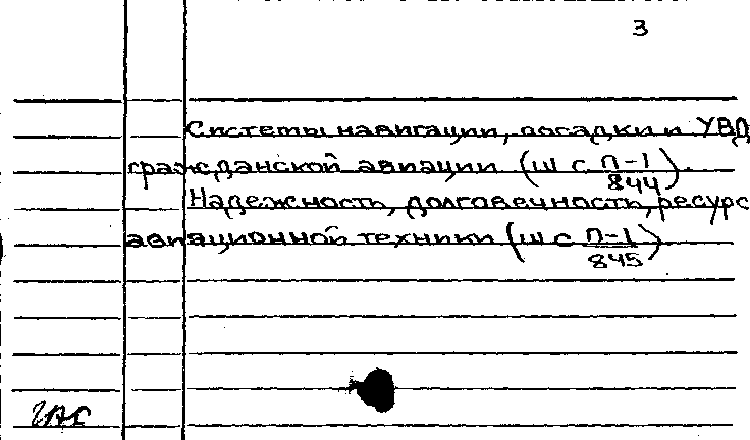 3
Системы навигации, посадки и УВД
гражданской авиации (ш с П-1/844).
Надежность, долговечность, ресурс
авиационной техники (ш с П-1/845)